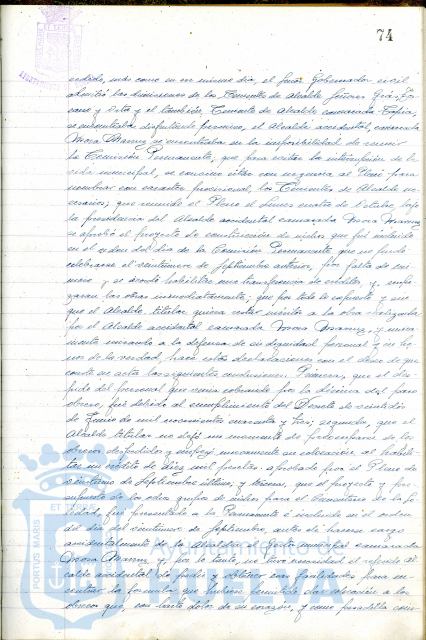 74
cedido, más como en un mismo dia, el Señor Gobernador civil
admitió las dimisiones de los Tenientes de Alcalde Señores
y el también Teniente de Alcalde camarada Tapia,
se encontraba disfrutando permiso, el Alcalde accidental, camarada
Mora Manny se encontraba en la imposibilidad de reunir
la Comisión Permanente, que para evitar la interrupción de la
vida municipal, se convino citar con urgencia al Pleno para
nombrar con carácter provisional, los Tenientes de Alcalde ne-
cesarios; que reunido el Pleno el Lunes cuatro de Octubre, bajo
la presidencia del Alcalde accidental camarada Mora Manny
se aprobó el proyecto de construcción de nichos que fué incluido
en el orden del dia de la Comisión Permanente que no pudo
celebrarse el veintiuno de Septiembre anterior, por falta de nú-
mero, y se acordó habilitar una transferencia de crédito y empe-
zaran las obras inmediatamente; que por todo lo expuesto y sin
que el Alcalde titular quiera restar mérito a la obra realizada
por el Alcalde accidental camarada Mora Manny, y única-
mente mirando a la defensa de su dignidad personal y en ho-
nor de la verdad, hace estas declaraciones con el deseo de que
conste en acta las siguientes conclusiones: Primera, que el des-
pido del personal que venia cobrando por la décima del paro
obrero, fué debido al cumplimiento del Decreto de veintidós
de Junio de mil novecientos cuarenta y tres; segunda, que el
Alcalde titular no dejó un momento de preocuparse de los
obreros despedidos y nuevamente su colocación al habili-
tar un crédito de diez mil pesetas aprobado por el Pleno de
veintiuno de Septiembre último; y tercera, que el proyecto y pre-
supuesto de los ocho grupos de nichos para el Cementerio de la
, fué presentado a la Permanente é incluido en el orden
del dia del veintiuno de Septiembre, antes de hacerse cargo
accidentalmente de la Alcaldia el Gestor municipal camarada
Mora Manny y por lo tanto, no tuvo necesidad el referido Al-
calde accidental de pedir y obtener con facilidades para en-
contrar la formula que hubiera permitido dar colocación a los
obreros que, con harto dolor de su corazón, y como pesadilla cons-
PORTUS MARIS
ET TERRE
Ayuntamiento de